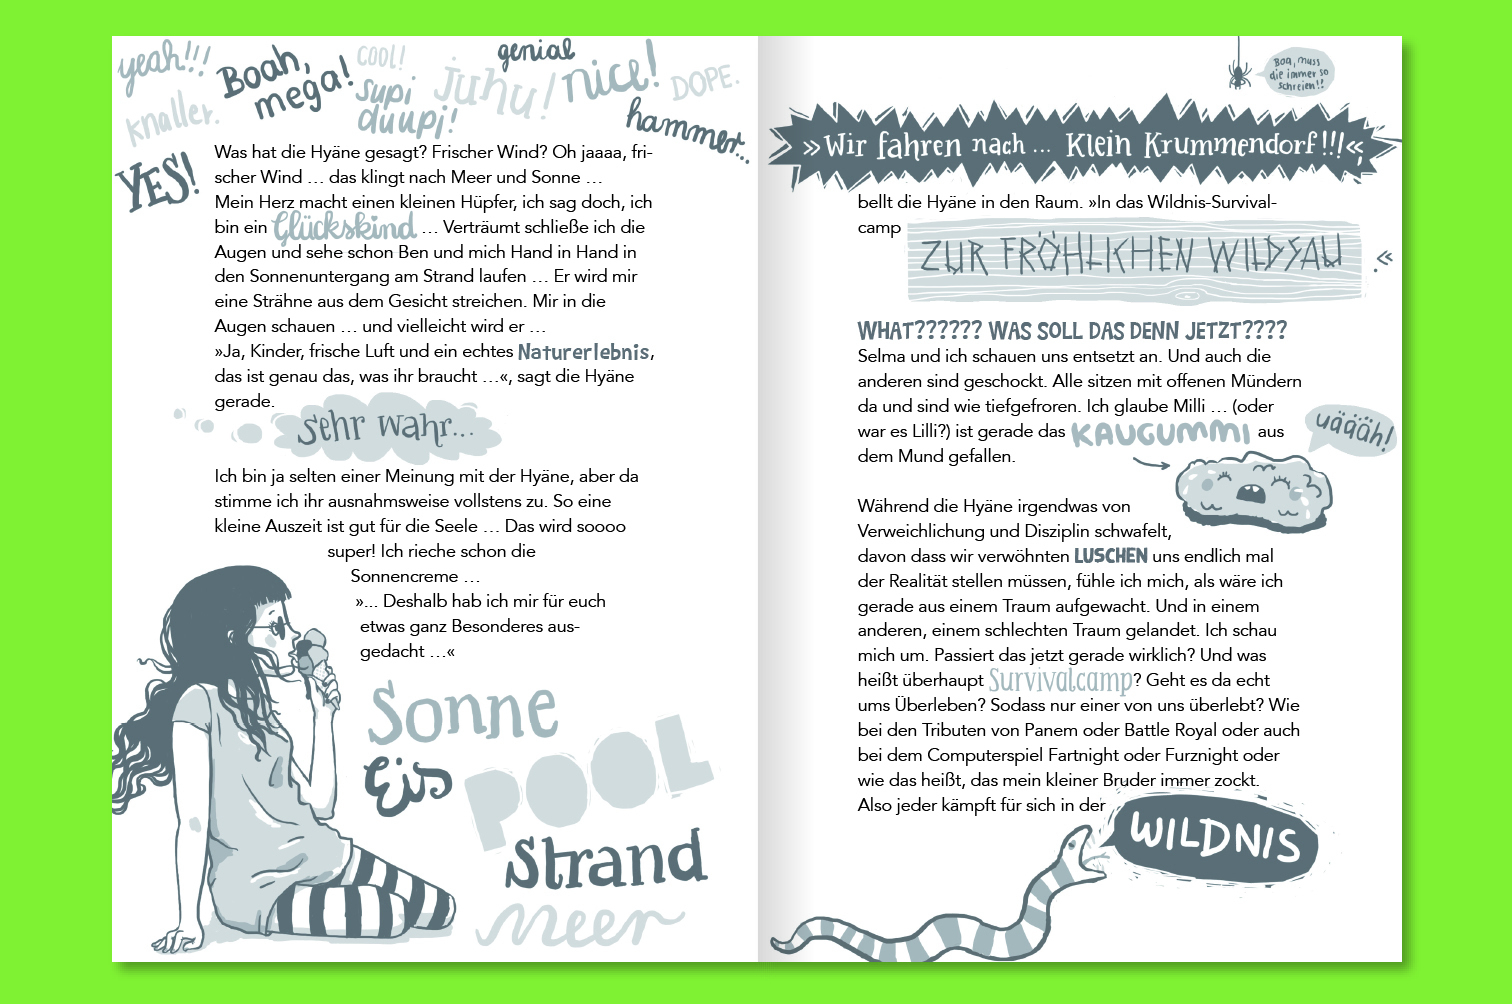 yeah!!!
Boah,
mega!
cool!
supi
duupi!
genial
Juhu!
nice!
DOPE.
knaller.
hammer...
YES!
Was hat die Hyäne gesagt? Frischer Wind? Oh jaaaa, fri-
scher Wind … das klingt nach Meer und Sonne …
Mein Herz macht einen kleinen Hüpfer, ich sag doch, ich
bin ein Glückskind … Verträumt schließe ich die
Augen und sehe schon Ben und mich Hand in Hand in
den Sonnenuntergang am Strand laufen … Er wird mir
eine Strähne aus dem Gesicht streichen. Mir in die
Augen schauen … und vielleicht wird er …
»Ja, Kinder, frische Luft und ein echtes Naturerlebnis,
das ist genau das, was ihr braucht …«, sagt die Hyäne
gerade.
sehr wahr...
Ich bin ja selten einer Meinung mit der Hyäne, aber da
stimme ich ihr ausnahmsweise vollstens zu. So eine
kleine Auszeit ist gut für die Seele … Das wird soooo
super! Ich rieche schon die
Sonnencreme …
»... Deshalb hab ich mir für euch
etwas ganz Besonderes aus-
gedacht …«
Sonne
Eis
POOL
Strand
Meer
Boa, muss
die immer so
schreien!?
»Wir fahren nach ... Klein Krummendorf!!!«
bellt die Hyäne in den Raum. »In das Wildnis-Survival-
camp ZUR FRÖHLICHEN WILDSAU.«
WHAT?????? WAS SOLL DAS DENN JETZT????
Selma und ich schauen uns entsetzt an. Und auch die
anderen sind geschockt. Alle sitzen mit offenen Mündern
da und sind wie tiefgefroren. Ich glaube Milli … (oder
war es Lilli?) ist gerade das KAUGUMMI aus
dem Mund gefallen.
uäääh!
Während die Hyäne irgendwas von
Verweichlichung und Disziplin schwafelt,
davon dass wir verwöhnten LUSCHEN uns endlich mal
der Realität stellen müssen, fühle ich mich, als wäre ich
gerade aus einem Traum aufgewacht. Und in einem
anderen, einem schlechten Traum gelandet. Ich schau
mich um. Passiert das jetzt gerade wirklich? Und was
heißt überhaupt Survivalcamp? Geht es da echt
ums Überleben? Sodass nur einer von uns überlebt? Wie
bei den Tributen von Panem oder Battle Royal oder auch
bei dem Computerspiel Fartnight oder Furznight oder
wie das heißt, das mein kleiner Bruder immer zockt.
Also jeder kämpft für sich in der
WILDNIS